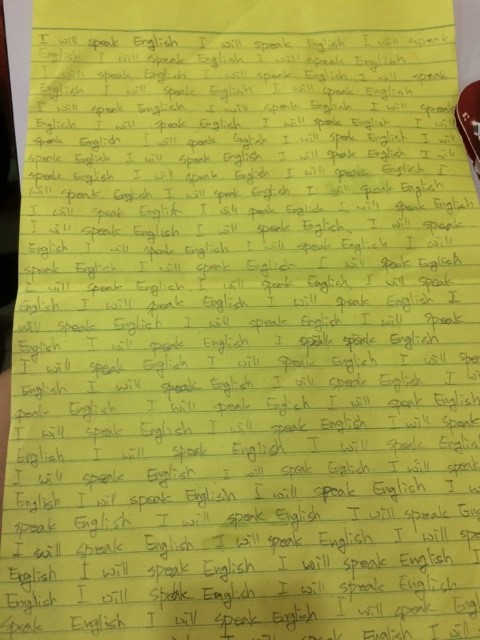 I will speak English I will speak English I will speak
English I will speak English I will speak English
I will speak English I will speak English I will speak
English I will speak English I will speak English
I will speak English I will speak English I will speak
English I will speak English I will speak English I will
speak English I will speak English I will speak English I will
speak English I will speak English I will speak English I will
speak English I will speak English I will speak English I
will speak English I will speak English I will speak English
I will speak English I will speak English I will speak English
I will speak English I will speak English, I will speak
English I will speak English I will speak English I will
speak English I will speak English I will speak English
I will speak English I will speak English, I will speak
English I will speak English I will speak English I
will speak English I will speak English I will speak
English I will speak English I speak English
I will speak English I will speak English I will
English I will speak English I will speak English I will
speak English I will speak English I will speak English
I will speak English I will speak English I will speak
English I will speak English I will speak English
I will speak English I will speak English I will speak
English I will speak English I will speak English I
speak English I will speak English I will speak
I will speak English I will speak English I will
English I will speak English I will speak English I
English I will speak English I will speak English
speak English I will speak English I will speak
will speak English I will